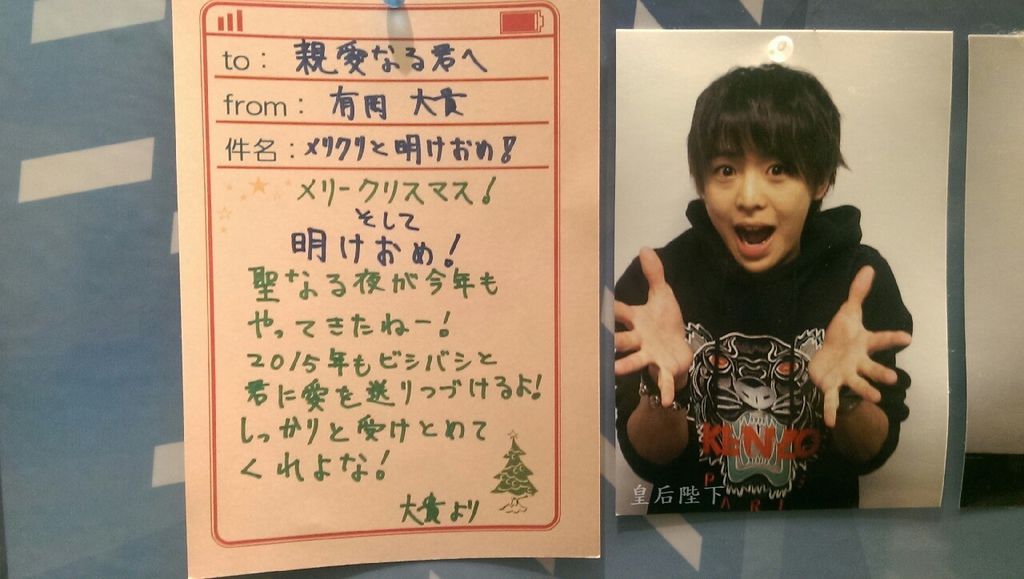 to: 親愛なる君へ
from: 有岡 大貴
件名: メリクリと明けおめ!
メリークリスマス!
そして
明けおめ!
聖なる夜が今年も
やってきたねー!
2015年もビシバシと
君に愛を送りつづけるよ!
しっかりと受けとめて
くれよな!
大貴より
KENZO
PARIS
皇后陛下